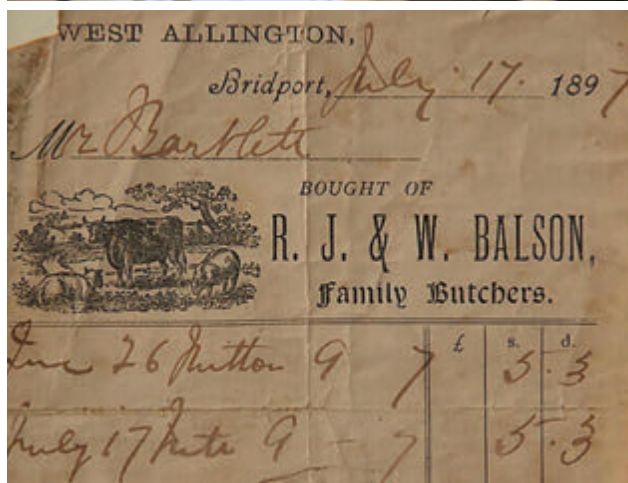 WEST ALLINGTON,
Bridport, July 17. 1897
Mr Bartlett
BOUGHT OF
R. J. & W. BALSON,
Family Butchers.
£ s. d.
June 26 Mutton 9 7 5.3
July 17 9 - 7 5.3